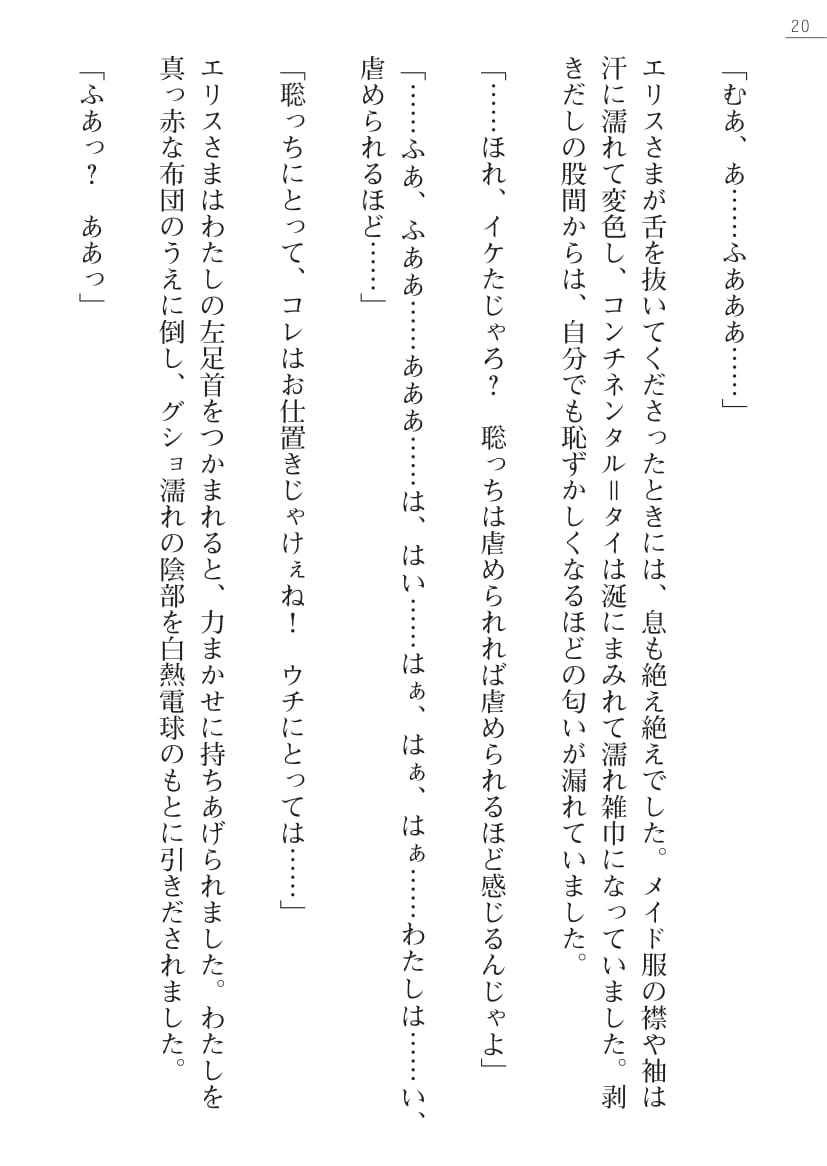 20
「むぁ、あ……ふぁああ……」
エリスさまが舌を抜いてくださったときには、息も絶え絶えでした。メイド服の襟や袖は
汗に濡れて変色し、コンチネンタル＝タイは涎にまみれて濡れ雑巾になっていました。剥
きだしの股間からは、自分でも恥ずかしくなるほどの匂いが漏れていました。
「……ほれ、イケたじゃろ？　聡っちは虐められれば虐められるほど感じるんじゃよ」
「……ふぁ、ふぁあ……あああ……は、はい……はぁ、はぁ、はぁ……わたしは……い、
虐められるほど……」
「聡っちにとって、コレはお仕置きじゃけぇね！　ウチにとっては……」
エリスさまはわたしの左足首をつかまれると、力まかせに持ちあげられました。わたしを
真っ赤な布団のうえに倒し、グショ濡れの陰部を白熱電球のもとに引きだされました。
「ふあっ？　ああっ」